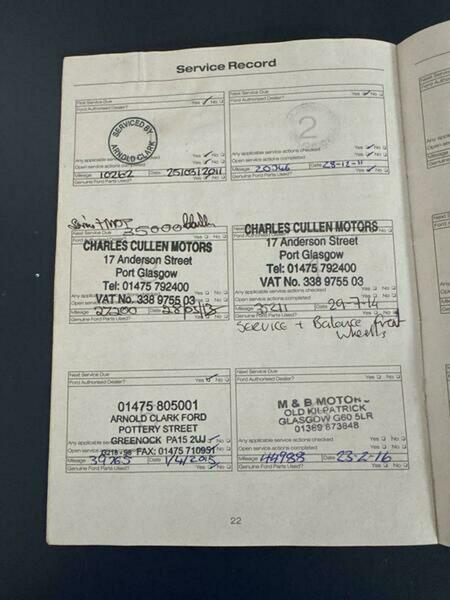 Service Record
First Service Due Yes No
Ford Authorised Dealer?
SERVICED BY
ARNOLD CLARK
Any applicable service actions checked Yes No
Open service actions completed Yes No
Mileage 10262 Date 25/03/2011
Genuine Ford Parts Used? Yes No
Next Service Due Yes No
Ford Authorised Dealer?
2
Any applicable service actions checked Yes No
Open service actions completed Yes No
Mileage Date 28-12-11
Genuine Ford Parts Used? Yes No
35000
Next Service Due
CHARLES CULLEN MOTORS
17 Anderson Street
Port Glasgow
Tel: 01475 792400
VAT No. 338 9755 03
Mileage 27200 Date
Genuine Ford Parts Used? Yes No
CHARLES CULLEN MOTORS
17 Anderson Street
Port Glasgow
Tel: 01475 792400
VAT No. 338 9755 03
Mileage Date 29-7-14
Genuine Ford Parts Used? Yes No
SERVICE + Balance front
wheels
Next Service Due Yes No
Ford Authorised Dealer?
01475 805001
ARNOLD CLARK FORD
POTTERY STREET
GREENOCK PA15 2UJ
FAX: 01475 710951
Mileage 39765 Date 1/4/2015
Genuine Ford Parts Used? Yes No
Next Service Due Yes No
Ford Authorised Dealer?
M & B MOTORS
OLD KILPATRICK
GLASGOW G60 5LR
01389 873848
Any applicable service actions checked Yes No
Open service actions completed Yes No
Mileage 44988 Date 23-2-16
Genuine Ford Parts Used? Yes No
22